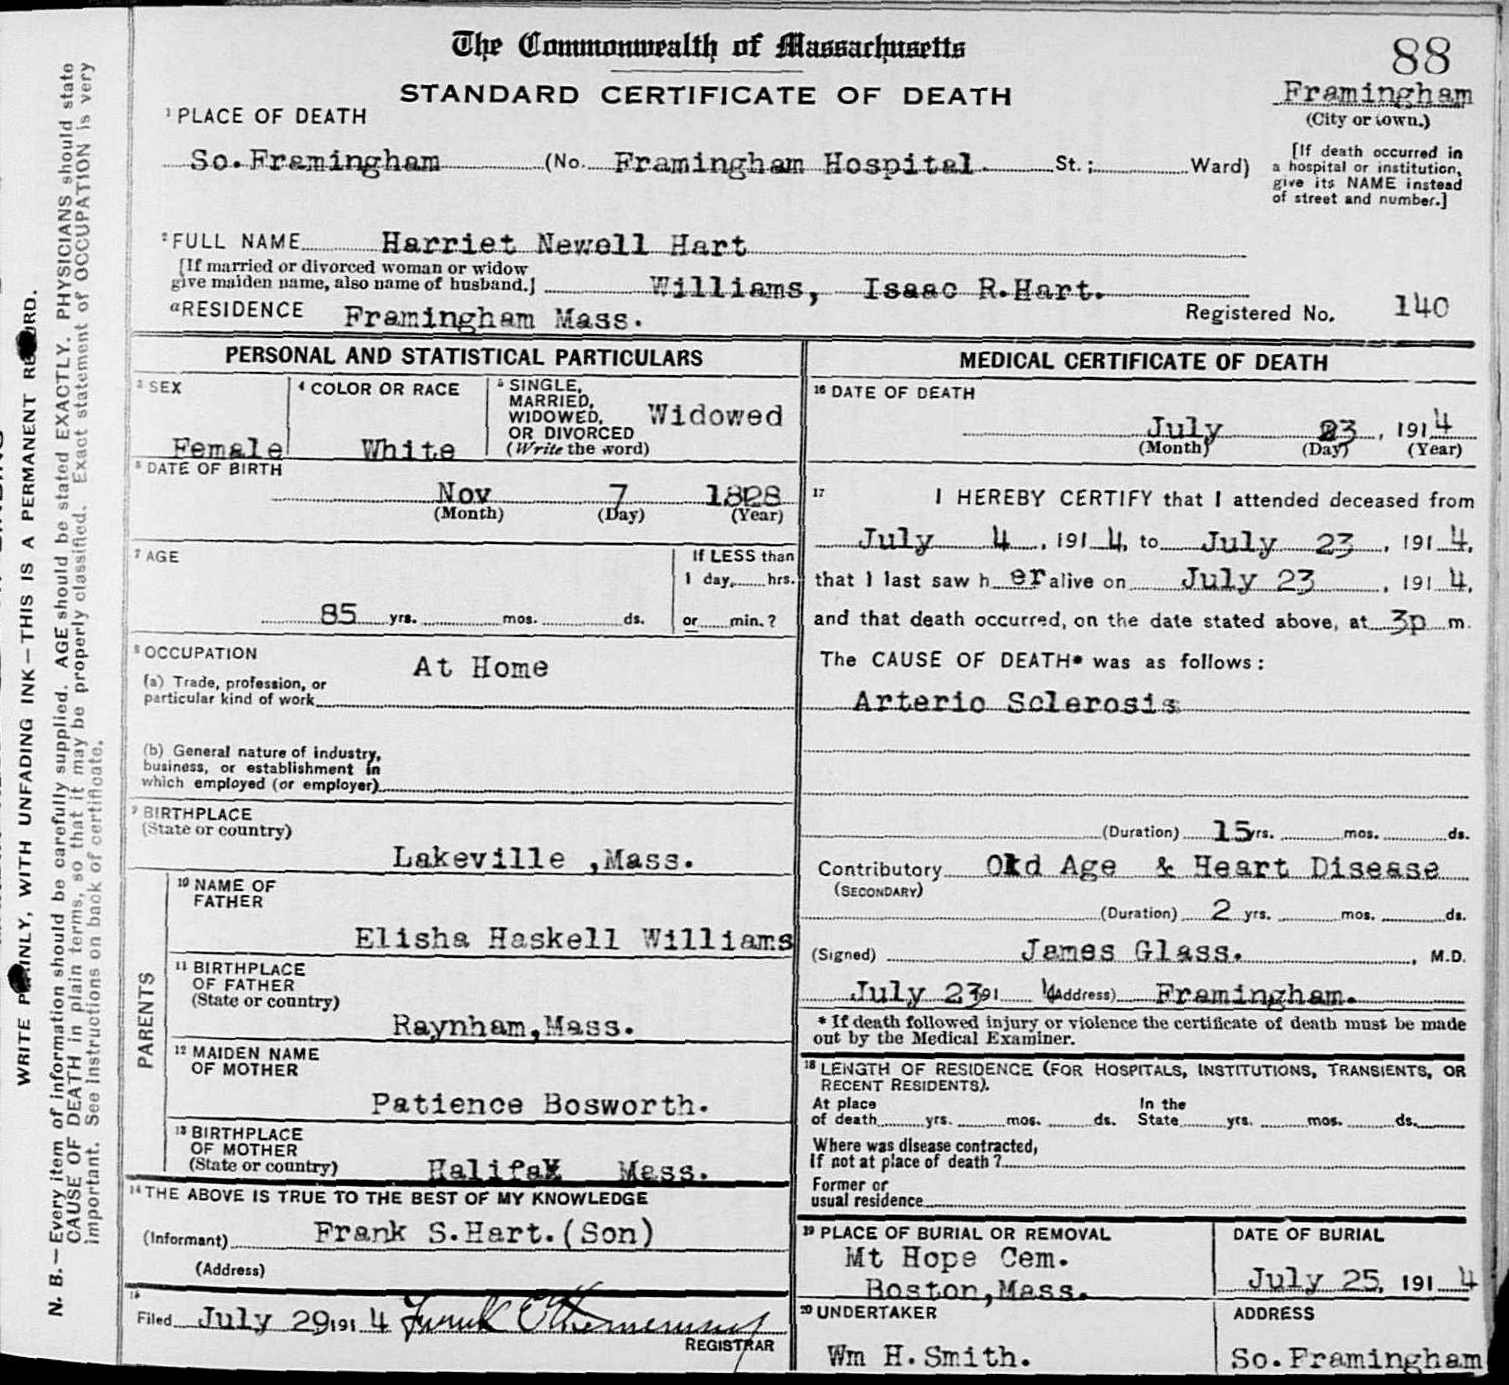 The Commonwealth of Massachusetts
88
STANDARD CERTIFICATE OF DEATH
Framingham
(City or town.)
1 PLACE OF DEATH
So.Framingham (No. Framingham Hospital St.; Ward)
[If death occurred in
a hospital or institution,
give its NAME instead
of street and number.]
2 FULL NAME Harriet Newell Hart
[If married or divorced woman or widow
give maiden name, also name of husband.] Williams, Isaac R.Hart.
a RESIDENCE Framingham Mass.
Registered No. 140
PERSONAL AND STATISTICAL PARTICULARS
3 SEX
Female
4 COLOR OR RACE
White
5 SINGLE,
MARRIED,
WIDOWED,
OR DIVORCED
(Write the word)
Widowed
6 DATE OF BIRTH
Nov 7 1828
(Month) (Day) (Year)
7 AGE
85 yrs. mos. ds.
If LESS than
1 day, hrs.
or min.?
8 OCCUPATION
At Home
(a) Trade, profession, or
particular kind of work
(b) General nature of industry,
business, or establishment in
which employed (or employer)
9 BIRTHPLACE
(State or country)
Lakeville ,Mass.
PARENTS
10 NAME OF
FATHER
Elisha Haskell Williams
11 BIRTHPLACE
OF FATHER
(State or country)
Raynham,Mass.
12 MAIDEN NAME
OF MOTHER
Patience Bosworth.
13 BIRTHPLACE
OF MOTHER
(State or country)
Halifax Mass.
14 THE ABOVE IS TRUE TO THE BEST OF MY KNOWLEDGE
(Informant) Frank S.Hart.(Son)
(Address)
15
Filed July 29 191 4
REGISTRAR
MEDICAL CERTIFICATE OF DEATH
16 DATE OF DEATH
July 23, 1914
(Month) (Day) (Year)
17 I HEREBY CERTIFY that I attended deceased from
July 4, 191 4, to July 23, 191 4,
that I last saw h er alive on July 23, 191 4,
and that death occurred, on the date stated above, at 3p m.
The CAUSE OF DEATH* was as follows:
Arterio Sclerosis
(Duration) 15 yrs. mos. ds.
Contributory Old Age & Heart Disease
(SECONDARY)
(Duration) 2 yrs. mos. ds.
(Signed) James Glass. , M.D.
July 23 191 4 (Address) Framingham.
* If death followed injury or violence the certificate of death must be made
out by the Medical Examiner.
18 LENGTH OF RESIDENCE (FOR HOSPITALS, INSTITUTIONS, TRANSIENTS, OR
RECENT RESIDENTS).
At place
of death yrs. mos. ds. In the
State yrs. mos. ds.
Where was disease contracted,
if not at place of death?
Former or
usual residence
19 PLACE OF BURIAL OR REMOVAL
Mt Hope Cem.
Boston,Mass.
DATE OF BURIAL
July 25, 191 4
20 UNDERTAKER
Wm H.Smith.
ADDRESS
So.Framingham
WRITE PLAINLY, WITH UNFADING INK—THIS IS A PERMANENT RECORD.
N. B.—Every item of information should be carefully supplied. AGE should be stated EXACTLY. PHYSICIANS should state
CAUSE OF DEATH in plain terms, so that it may be properly classified. Exact statement of OCCUPATION is very
important. See instructions on back of certificate.